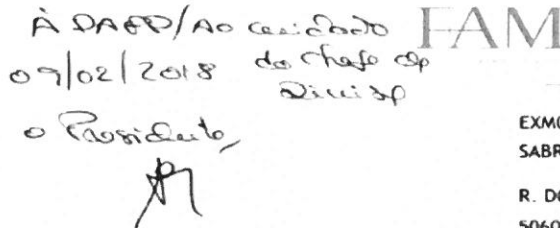 À DAEP/Ao cuidado
do chefe de
Divisão
09/02/2018
o Presidente,
FAM
EXMO
SABR
R. DO
5060